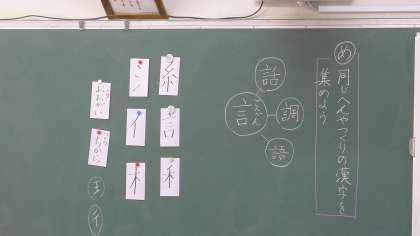 め
同じへんやつくりの漢字を
集めよう
話
調
言
ごんべん
語
糸
言
禾
氵
亻
木
おおがい
ちから